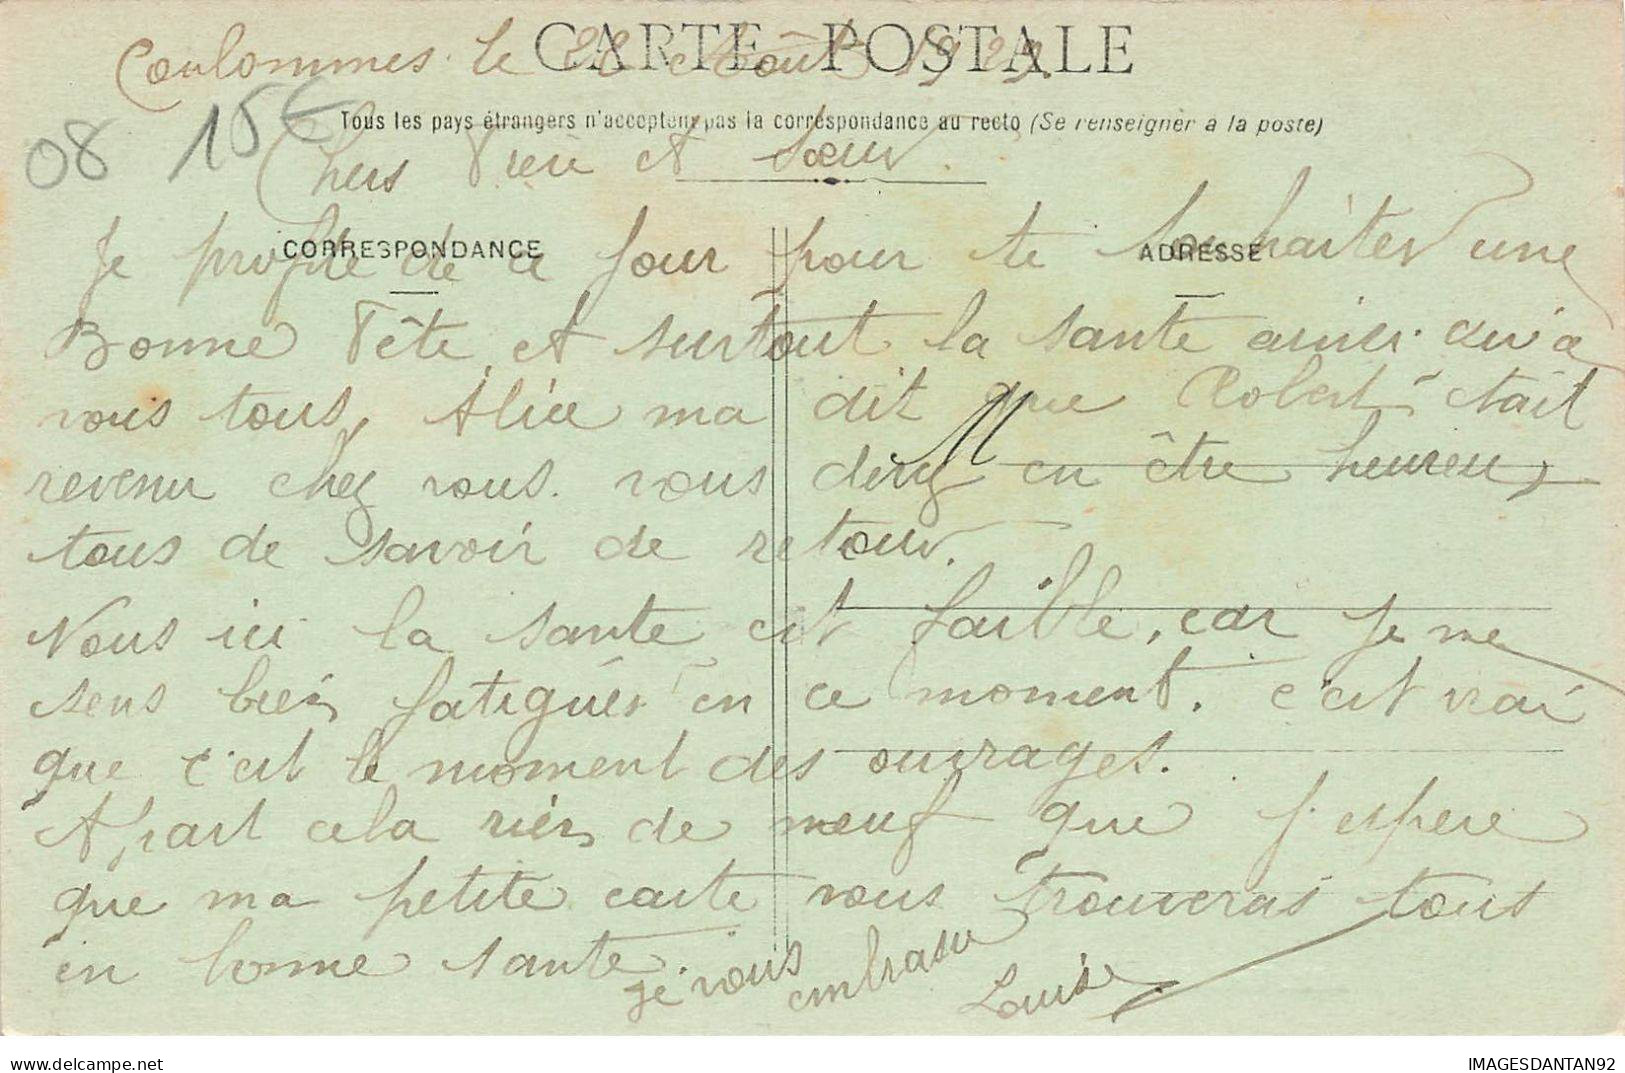 CARTE POSTALE
Coulommes le 22 Août 1929
Tous les pays étrangers n'acceptent pas la correspondance au recto (Se renseigner à la poste)
08 15€
Chers Frère et Sœur
CORRESPONDANCE
ADRESSE
Je profite de ce jour pour te souhaiter une
Bonne Fête et surtout la sante ainsi qu'a
vous tous, Alice ma dit que Robert était
revenu chez vous. vous devez en être heureux
tous de savoir de retour.
Nous ici la sante est faible, car je me
sens bien fatigués en ce moment. c'est vrai
que c'est le moment des ouvrages.
Apart cela rien de neuf que j'espere
que ma petite carte vous trouveras tous
en bonne sante. je vous embrasse
Louise
delcampe.net
IMAGESDANTAN92